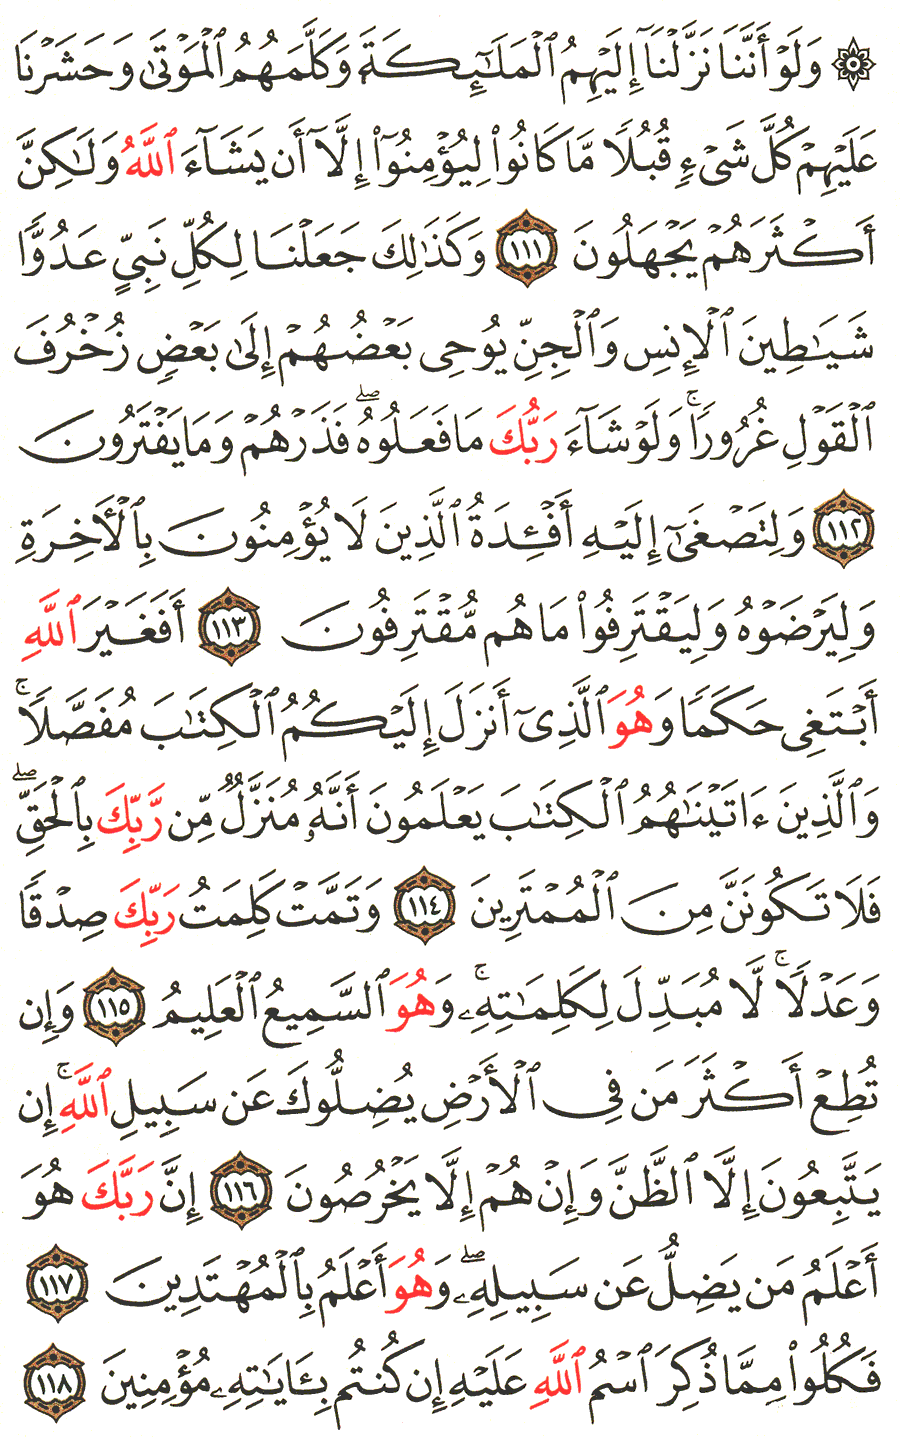 ۞ وَلَوْ أَنَّنَا نَزَّلْنَآ إِلَيْهِمُ ٱلْمَلَـٰٓئِكَةَ وَكَلَّمَهُمُ ٱلْمَوْتَىٰ وَحَشَرْنَا
عَلَيْهِمْ كُلَّ شَىْءٍ قُبُلًا مَّا كَانُوا۟ لِيُؤْمِنُوٓا۟ إِلَّآ أَن يَشَآءَ ٱللَّهُ وَلَـٰكِنَّ
أَكْثَرَهُمْ يَجْهَلُونَ ١١١ وَكَذَٰلِكَ جَعَلْنَا لِكُلِّ نَبِىٍّ عَدُوًّا
شَيَـٰطِينَ ٱلْإِنسِ وَٱلْجِنِّ يُوحِى بَعْضُهُمْ إِلَىٰ بَعْضٍ زُخْرُفَ
ٱلْقَوْلِ غُرُورًا ۚ وَلَوْ شَآءَ رَبُّكَ مَا فَعَلُوهُ ۖ فَذَرْهُمْ وَمَا يَفْتَرُونَ
١١٢ وَلِتَصْغَىٰٓ إِلَيْهِ أَفْـِٔدَةُ ٱلَّذِينَ لَا يُؤْمِنُونَ بِٱلْـَٔاخِرَةِ
وَلِيَرْضَوْهُ وَلِيَقْتَرِفُوا۟ مَا هُم مُّقْتَرِفُونَ ١١٣ أَفَغَيْرَ ٱللَّهِ
أَبْتَغِى حَكَمًا وَهُوَ ٱلَّذِىٓ أَنزَلَ إِلَيْكُمُ ٱلْكِتَـٰبَ مُفَصَّلًا ۚ
وَٱلَّذِينَ ءَاتَيْنَـٰهُمُ ٱلْكِتَـٰبَ يَعْلَمُونَ أَنَّهُۥ مُنَزَّلٌ مِّن رَّبِّكَ بِٱلْحَقِّ ۖ
فَلَا تَكُونَنَّ مِنَ ٱلْمُمْتَرِينَ ١١٤ وَتَمَّتْ كَلِمَتُ رَبِّكَ صِدْقًا
وَعَدْلًا ۚ لَّا مُبَدِّلَ لِكَلِمَـٰتِهِۦ ۚ وَهُوَ ٱلسَّمِيعُ ٱلْعَلِيمُ ١١٥ وَإِن
تُطِعْ أَكْثَرَ مَن فِى ٱلْأَرْضِ يُضِلُّوكَ عَن سَبِيلِ ٱللَّهِ ۚ إِن
يَتَّبِعُونَ إِلَّا ٱلظَّنَّ وَإِنْ هُمْ إِلَّا يَخْرُصُونَ ١١٦ إِنَّ رَبَّكَ هُوَ
أَعْلَمُ مَن يَضِلُّ عَن سَبِيلِهِۦ ۖ وَهُوَ أَعْلَمُ بِٱلْمُهْتَدِينَ ١١٧
فَكُلُوا۟ مِمَّا ذُكِرَ ٱسْمُ ٱللَّهِ عَلَيْهِ إِن كُنتُم بِـَٔايَـٰتِهِۦ مُؤْمِنِينَ ١١٨